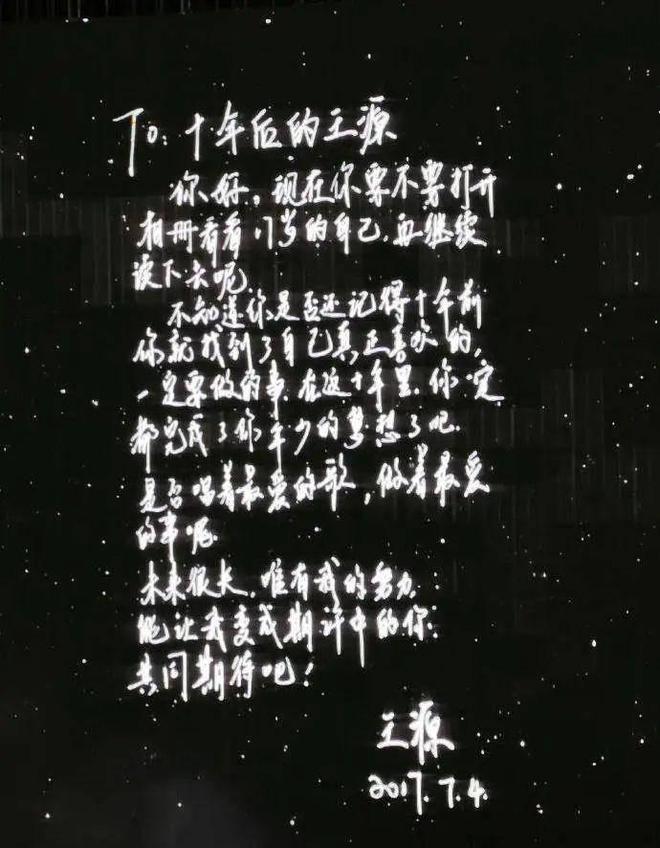 To: 十年后的王源
你好，现在你要不要打开
相册看看17岁的自己.再继续
读下去呢.
不知道你是否还记得十年前
你就找到了自己真正喜欢的,
一定要做的事.在这十年里.你一定
都完成了你年少的梦想了吧.
是否唱着最爱的歌，做着最爱
的事呢.
未来很长.唯有我的努力.
能让我变成期许中的你.
共同期待吧！
王源
2017.7.4.